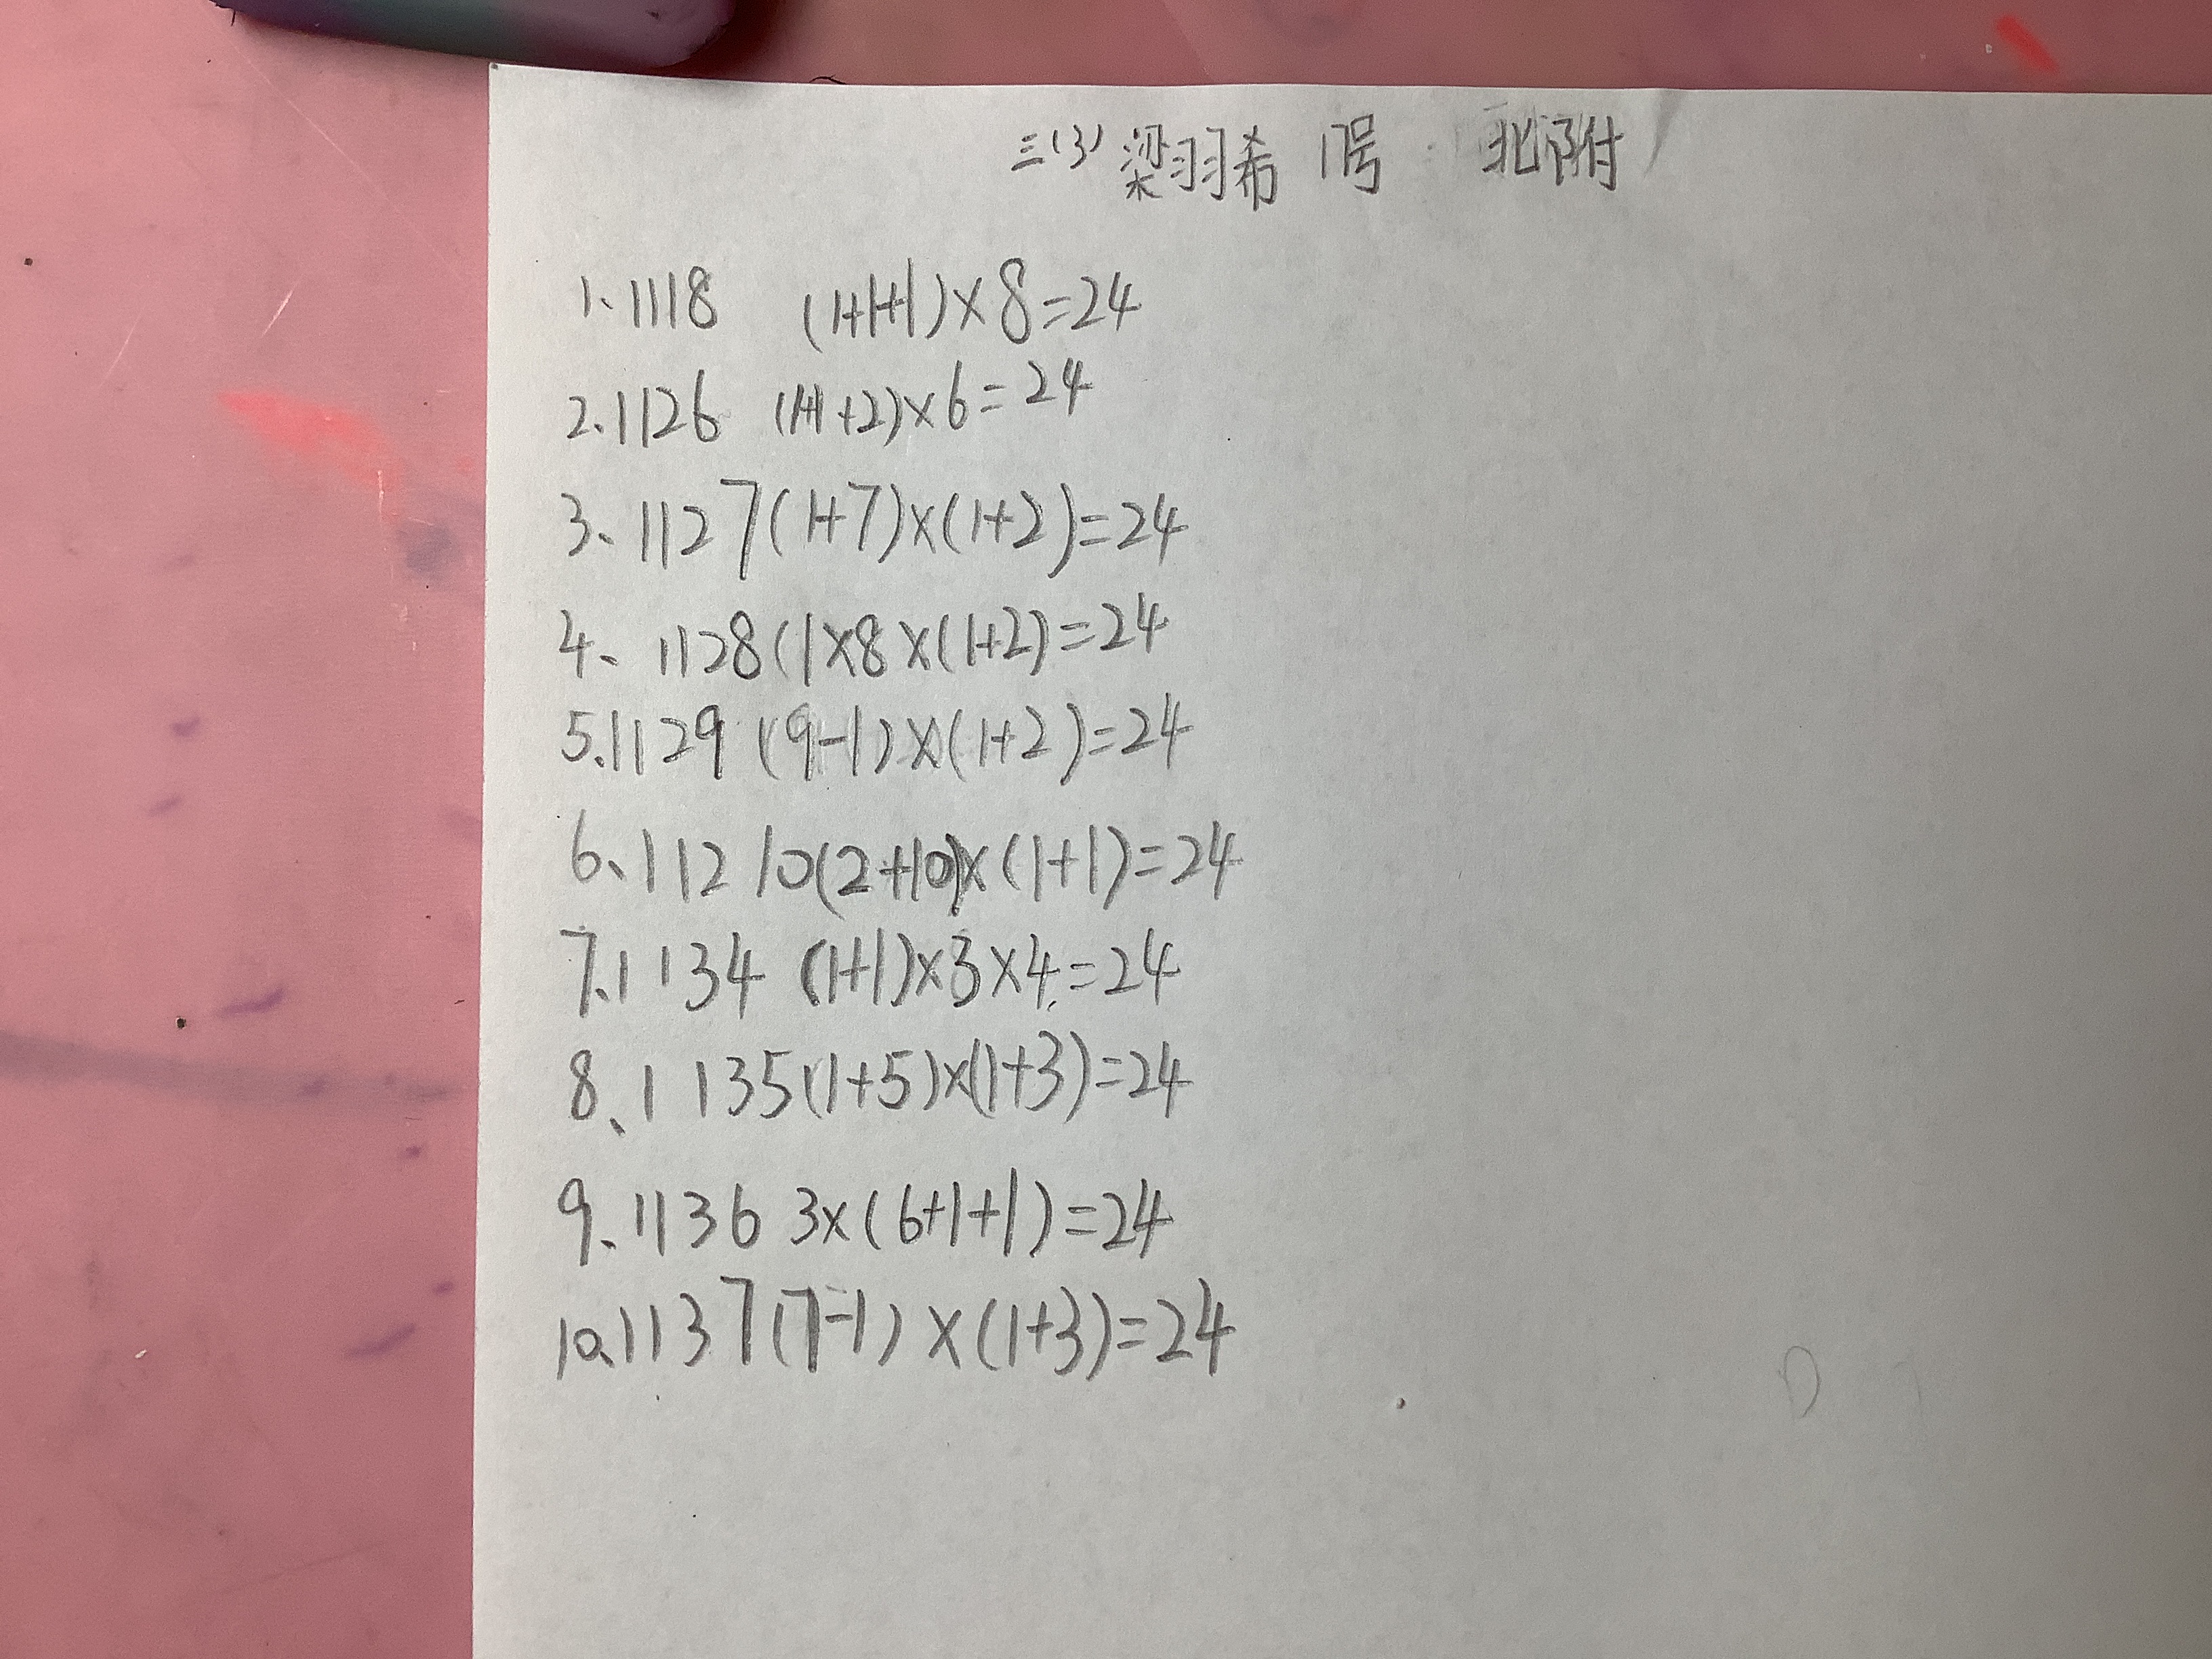 三(3) 梁羽希 1号 北附
1、1118 (1+1+1)×8=24
2、1126 (1+1+2)×6=24
3、1127(1+7)×(1+2)=24
4、1128(1×8×(1+2)=24
5、1129 (9-1)×(1+2)=24
6、112 10(2+10)×(1+1)=24
7、1134 (1+1)×3×4=24
8、1135(1+5)×(1+3)=24
9、1136 3×(6+1+1)=24
10、1137(7-1)×(1+3)=24